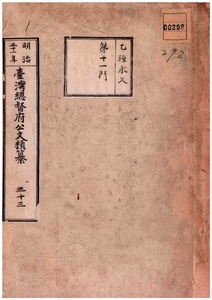 00292
292
乙種永久
第十一門
明治
三十一年
臺灣總督府公文類纂
三十三